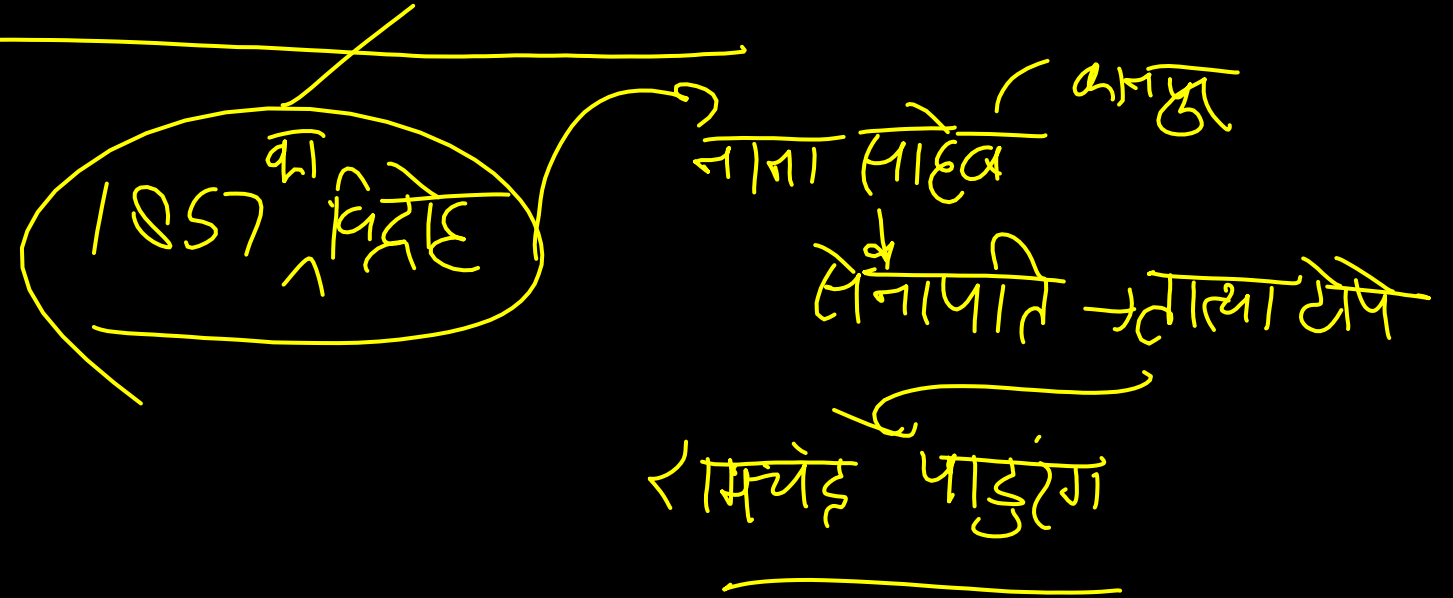 कानपुर
1857 का विद्रोह
नाना साहेब
के
सेनापति → तात्या टोपे
रामचंद्र पाडुरंग